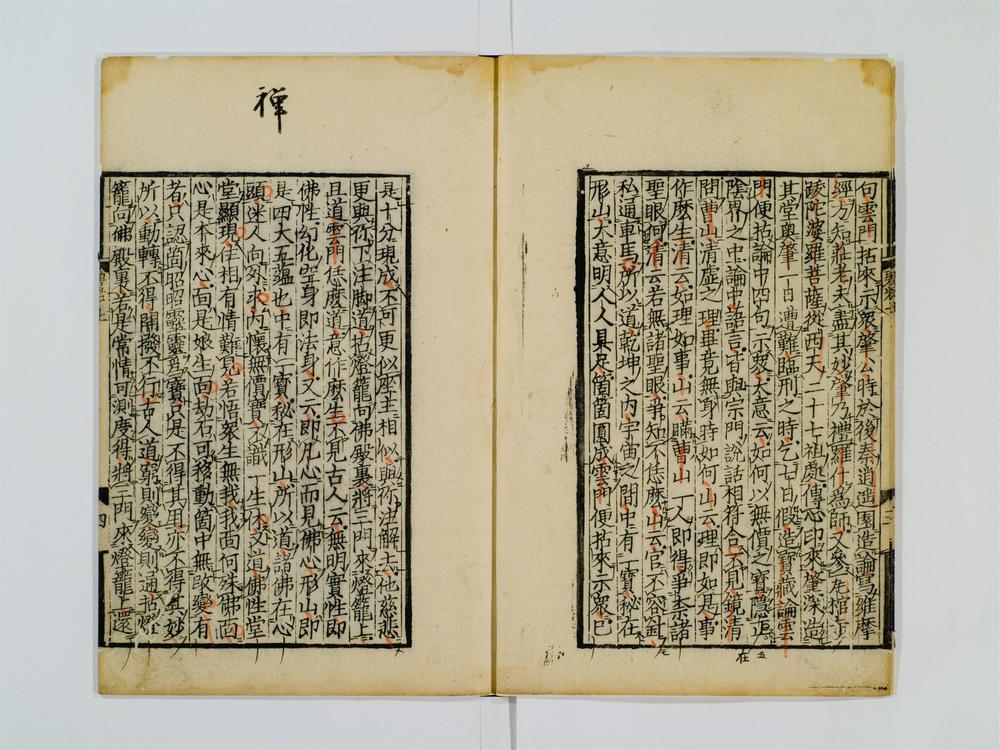 句雲門拈來示衆肇公時於後秦逍遙園造論寫維摩
經方知莊老未盡其妙肇乃禮羅什為師又參瓦棺寺
跋陀婆羅菩薩從西天二十七祖處傳心印來肇深造
其堂奧肇一日遭難臨刑之時乞七日假造寶藏論雲
門便拈論中四句示衆大意云如何以無價之寶隱正
在
陰界之中論中語言皆與宗門說話相符合不見鏡清
問曹山清虛之理畢竟無身時如何山云理即如是事
作麼生清云如理如事山云瞞曹山一人即得爭柰諸
聖眼何清云若無諸聖眼爭知不恁麼山云官不容針
私通車馬所以道乾坤之內宇宙之間中有一寶秘在
形山大意明人人具足箇箇圓成雲門便拈來示衆已
禅
是十分現成不可更似座主相似與你注解去他慈悲
更與你下注脚道拈燈籠向佛殿裏將三門來燈籠上
且道雲門恁麼道意作麼生不見古人云無明實性即
佛性幻化空身即法身又云即凡心而見佛心形山即
是四大五蘊也中有一寶秘在形山所以道諸佛在心
頭迷人向外求内懷無價寶不識一生休又道佛性堂
堂顯現住相有情難見若悟衆生無我我面何殊佛面
心是本來心面是娘生面劫石可移動箇中無改變有
者只認箇昭昭靈靈為寶只是不得其用亦不得其妙
所以動轉不得開撥不行古人道窮則變變則通拈燈
籠向佛殿裏若是常情可測度得將三門來燈籠上還
四